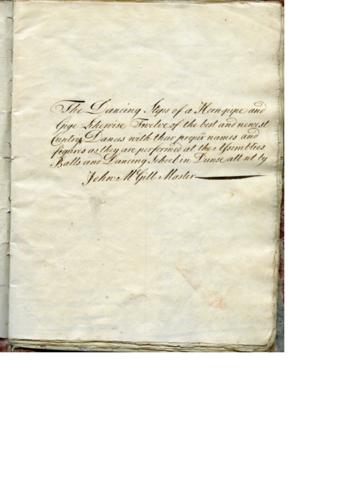 The Dancing Steps of a Hornpipe and
Gige Likewise Twelve of the best and newest
Cuntry Dances with their proper names and
figures as they are performed at the Assemblies
Balls and Dancing School in Dunse all set by
John McGill Master